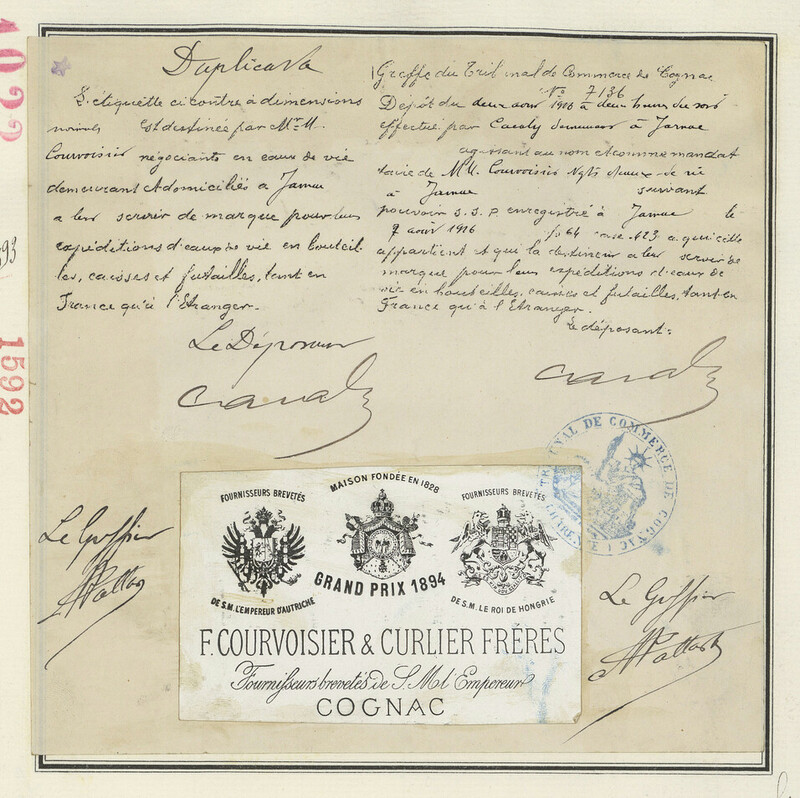 Duplicata
L'étiquette ci contre à dimensions
normales est destinée par Mr. M.
Courvoisier négociants en eaux de vie
demeurant et domiciliés à Jarnac
a leur servir de marque pour leurs
expéditions d'eaux de vie en bouteil-
les, caisses et futailles, tant en
France qu'à l'Etranger.
Le Déposant
Greffe du Tribunal de Commerce de Cognac
No 7136
Dépôt du deux aout 1916 à deux heures du soir
effectué par demeurant à Jarnac
agissant au nom et comme mandat
taire de MM. Courvoisier Ngts d'eaux de vie
à Jarnac suivant
pouvoir S.S.P. enregistré à Jarnac le
9 aout 1916 fo 64 case No 23 a qui elle
appartient et qui la destinent a leur servir de
marque pour leurs expéditions d'eaux de
vie en bouteilles, caisses et futailles, tant en
France qu'à l'Etranger.
Le déposant:
TRIBUNAL DE COMMERCE DE COGNAC
(CHARENTE)
Le Greffier
Le Greffier
MAISON FONDÉE EN 1828
FOURNISSEURS BREVETÉS
FOURNISSEURS BREVETÉS
GRAND PRIX 1894
DE S.M. L'EMPEREUR D'AUTRICHE
DE S.M. LE ROI DE HONGRIE
F. COURVOISIER & CURLIER FRÉRES
Fournisseurs brevetés de S.M. l'Empereur
COGNAC
93
1592